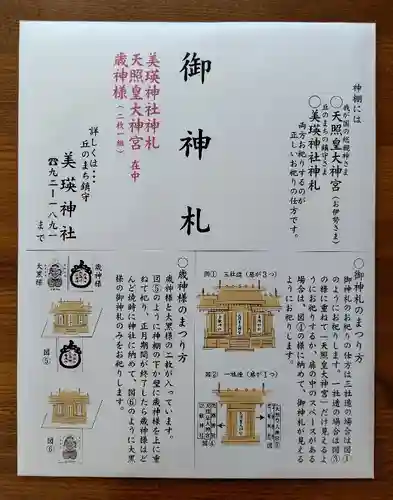 神棚には
我が国の総親神さま
◯天照皇大神宮(お伊勢さま)
丘のまちの鎮守さま
◯美瑛神社神札
両方お祀りするのが
正しいお祀りの仕方です。
御神札
美瑛神社神札
天照皇大神宮 在中
歳神様(二枚一組)
詳しくは…
丘のまち鎮守
美瑛神社
☎九二―一八九一
まで
◯御神札のまつり方
御神札のお祀りの仕方は三社造の場合は図①
のようにお祀りします。一社造の場合は図③
の様に重ね「天照皇大神宮」だけ見えるよ
うにお祀りするか、扉の中のスペースがある
場合は、図④の様に納めて、御神札が見える
ようにお祀りします。
図① 三社造(扉が3つ)
図② 一社造(扉が1つ)
◯歳神様のまつり方
歳神様と大黒様の二枚が入っています。
図⑤のように神棚の下か壁に歳神様を上に重
ねて祀り、正月期間が終了したら歳神様はど
んど焼時に神社に納めて、図⑥のように大黒
様の御神札のみをお祀りします。
歳神様
大黒様
図⑤
図⑥